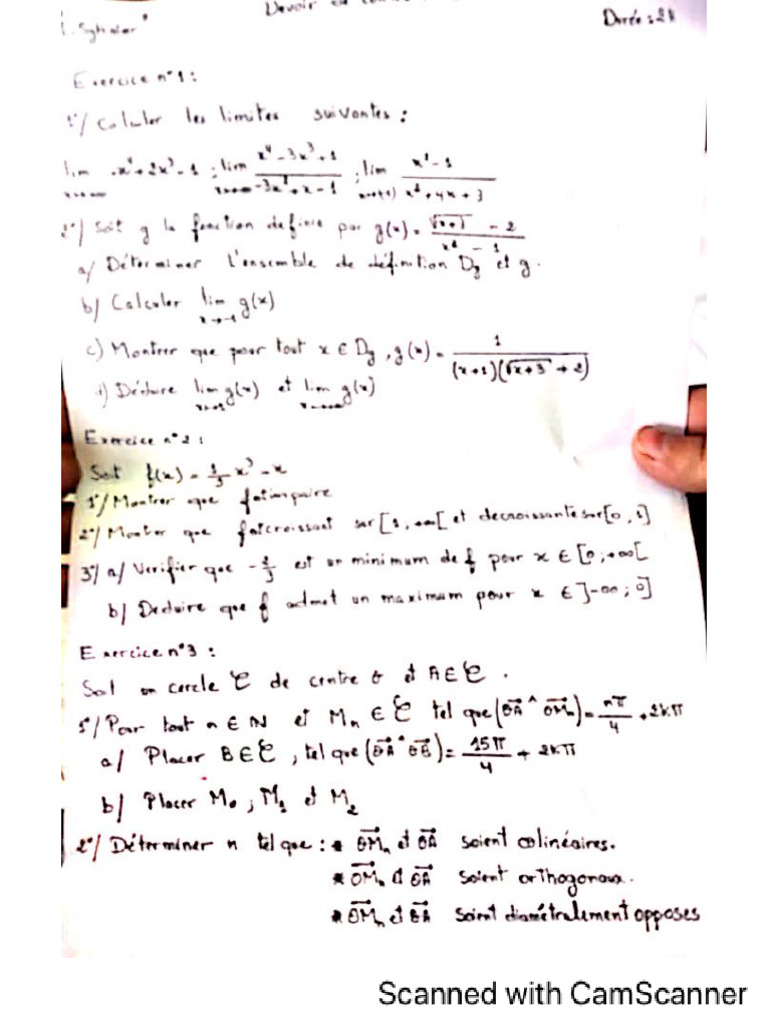 Devoir de
Durée : 2h
Exercice n°1 :
1°/ Calculer les limites suivantes :
lim -x⁴+2x³-1 ; lim (x⁴-3x³+1)/(-3x²+x-1) ; lim (x²-1)/(x²+4x+3)
2°/ Soit g la fonction definie par g(x) = -2
a/ Déterminer l'ensemble de définition Dg et g.
b/ Calculer lim g(x)
c) Montrer que pour tout x ∈ Dg, g(x) = 1/((x+1)(√x+3 + 2))
d) Déduire lim g(x) et lim g(x)
Exercice n°2 :
Soit f(x) = 1/3 x³ - x
1°/ Montrer que f et impaire
2°/ Monter que f et croissant sur [1, +∞[ et decroissante sur [0, 1]
3°/ a/ Verifier que -2/3 est un minimum de f pour x ∈ [0 ; +∞[
b/ Deduire que f admet un maximum pour x ∈ ]-∞ ; 0]
Exercice n°3 :
Soit un cercle C de centre O et A ∈ C.
1°/ Pour tout n ∈ N et Mn ∈ C tel que (OA ^ OMn) = nπ/4 + 2kπ
a/ Placer B ∈ C, tel que (OA ^ OB) = 15π/4 + 2kπ
b/ Placer M₀ ; M₁ et M₂
2°/ Déterminer n tel que : * OMn et OA soient colinéaires.
* OMn et OA soient orthogonaux.
* OMn et OA soient diamétralement opposes
Scanned with CamScanner